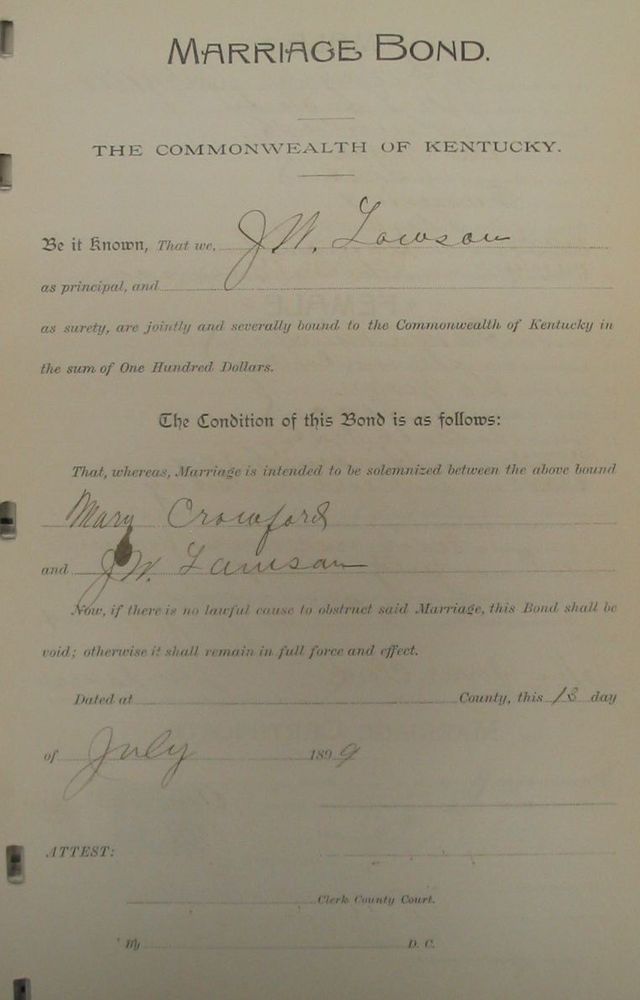 MARRIAGE BOND.
THE COMMONWEALTH OF KENTUCKY.
Be it Known, That we, J W. Lawson
as principal, and
as surety, are jointly and severally bound to the Commonwealth of Kentucky in
the sum of One Hundred Dollars.
The Condition of this Bond is as follows:
That, whereas, Marriage is intended to be solemnized between the above bound
Mary Crawford
and J W. Lawson
Now, if there is no lawful cause to obstruct said Marriage, this Bond shall be
void; otherwise it shall remain in full force and effect.
Dated at County, this 18 day
of July 1899
ATTEST:
Clerk County Court.
By D. C.